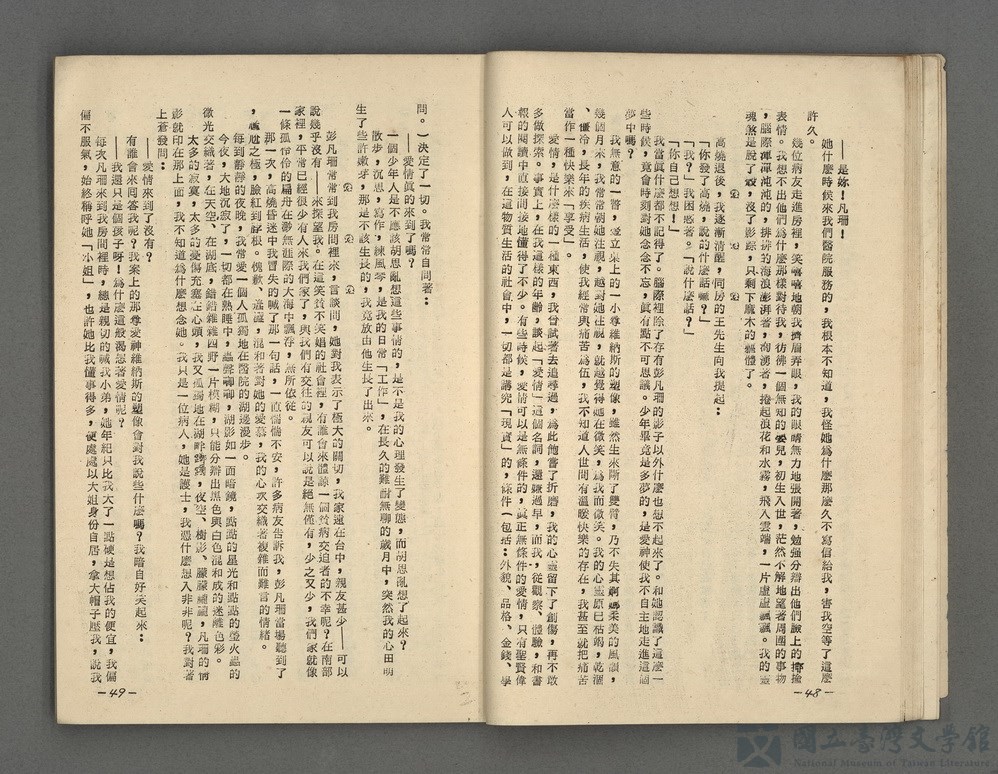 ——是妳！凡珊！
她什麼時候來我們醫院服務的，我根本不知道，我怪她爲什麼那麼久不寫信給我，害我空等了這麼
許久。
幾位病友走進房裡，笑嘻嘻地朝我擠眉弄眼，我的眼睛無力地張開著，勉強分辨出他們臉上的
表情。我想不出他們爲什麼那樣對待我，彷彿一個無知的嬰兒，初生入世，茫然不解地望著周圍的事物
，腦際渾渾沌沌的，排排的海浪澎湃著，洶湧著，捲起浪花和水霧，飛入雲端，一片虛虛飄飄。我的靈
魂煞是脫了殼，沒了影踪，只剩下麻木的軀體了。
高燒退後，我逐漸清醒，同房的王先生向我提起：
「你發了高燒，說的什麼話嘛？」
「我？」我困惑著。「說什麼話？」
「你自己想想！」
我當眞什麼都不記得了。腦際裡除了存有彭凡珊的影子以外什麼也想不起來了。和她認識了這麼一
些時候，竟會時刻對她念念不忘，眞有點不可思議。少年畢竟是多夢的，是愛神使我不自主地走進這個
夢中嗎？
我無意的一瞥，豎立桌上的一小尊維納斯的塑像，雖然生來斷了雙臂，乃不失其婀娜柔美的風韻，
幾個月來，我常常朝她注視，越對她注視，就越覺得她在微笑，爲我而微笑。我的心靈原已枯竭，乾涸
、僵冷，長年的疾病生活，使我經常與痛苦爲伍，我不知道人世間有溫暖快樂的存在，我甚至就把痛苦
當作一種快樂來「享受」。
愛情，是什麼樣的一種東西，我曾試著去追尋過，爲此他嘗了折磨，我的心靈留下了創傷，再不敢
多做探索。事實上，在我這樣的年齡，談起「愛情」這個名詞，還嫌過早，而我，從觀察、體驗，和書
報的閱讀中直接間接地懂得了不少。有些時候，愛情可以是無條件的，眞正無條件的愛情，只有聖賢偉
人可以做到，在在這物質生活的社會中，一切都是講究「現實」的，條件（包括：外貌、品格、金錢、學
—48—
問。）決定了一切。我常常自問著：
——愛情眞的來到了嗎？
一個少年人是不應該胡思亂想這些事情的，是不是我的心理發生了變態，而胡思亂想了起來？
散步，沉思，寫作，練風琴，是我的日常「工作」，在長久的難耐無聊的歲月中，突然我的心田萌
生了些許嫩芽，那是不該生長的，我竟放由他生長了出來。
彭凡珊常常到我房間裡來，言談間，她對我表示了極大的關切，我家遠在台中，親友甚少——可以
說幾乎沒有——來探望我。在這笑貧不笑娼的社會裡，有誰會來體諒一個貧病交迫者的不幸呢？在南部
家裡，平常已經很少有人來我們家了，與我們有交往的親友可以說是絕無僅有，少之又少，我們家就像
一條孤伶伶的扁舟在鬱無涯際的大海中飄存，無所依從。
那一次，高燒昏迷中我冒失的喊了那一句話，一直惴惴不安，許多病友告訴我，彭凡珊當場聽到了
，尷尬之極，臉紅到耳根。愧歉、遙遠，混和著對她的愛慕，我的心坎交織著複雜而難言的情緒。
每到靜靜的夜晚，我常愛一個人孤獨地在醫院的湖邊漫步。
今夜，大地沉寂了，一切都在熟睡中，蟲聲啣啣，湖影如一面暗鏡，點點的星光和點點的螢火蟲的
微光交織著，在天空、在湖底，錯錯雜雜四野一片模糊，只能分辨出黑色與白色混和成的迷離色彩。
太多的寂寞，太多的憂傷充塞在心頭，我又孤獨地在湖畔踌躇，夜空、樹影、朦朦朧朧，凡珊的倩
影就印在那上面，我不知道爲什麼想念她。我只是一位病人，她是護士，我憑什麼想入非非呢？我對著
上蒼發問：
——愛情來到了沒有？
有誰會來囘答我呢？我案上的那尊愛神維納斯的塑像會對我說些什麼嗎？我暗自好笑起來：
——我還只是個孩子呀！爲什麼這般渴想著愛情呢？
每次凡珊來到我房間裡時，總是親切的喊我小弟，她年紀只比我大了一點硬是想佔我的便宜，我偏
偏不服氣，始終稱呼她「小姐」，也許她比我懂事得多，便處處以大姐身份自居，拿大帽子壓我，說我
—49—
國立臺灣文學館
National Museum of Taiwan Literature